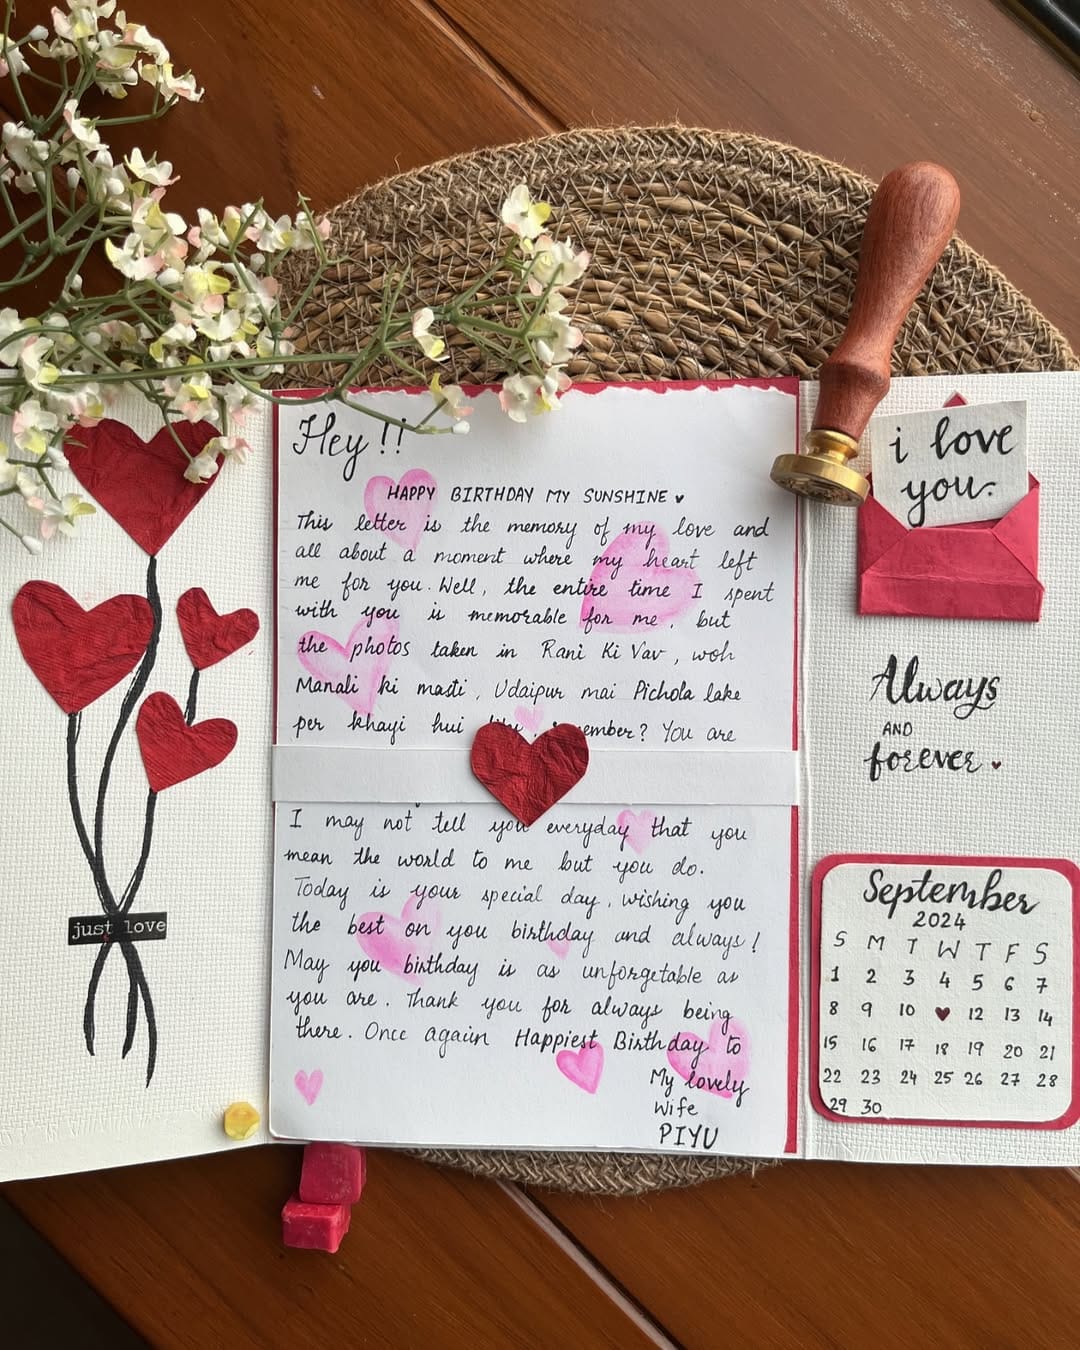 Hey !!
HAPPY BIRTHDAY MY SUNSHINE ♥
This letter is the memory of my love and
all about a moment where my heart left
me for you. Well, the entire time I spent
with you is memorable for me, but
the photos taken in Rani Ki Vav, woh
Manali ki masti, Udaipur mai Pichola lake
per khayi hui ? You are
I may not tell you everyday that you
mean the world to me but you do.
Today is your special day, wishing you
the best on you birthday and always!
May you birthday is as unforgetable as
you are. Thank you for always being
there. Once again Happiest Birthday to
My lovely
Wife
PIYU
just love
i love
you.
Always
AND
forever ♥
September
2024
S M T W T F S
1 2 3 4 5 6 7
8 9 10 ♥ 12 13 14
15 16 17 18 19 20 21
22 23 24 25 26 27 28
29 30